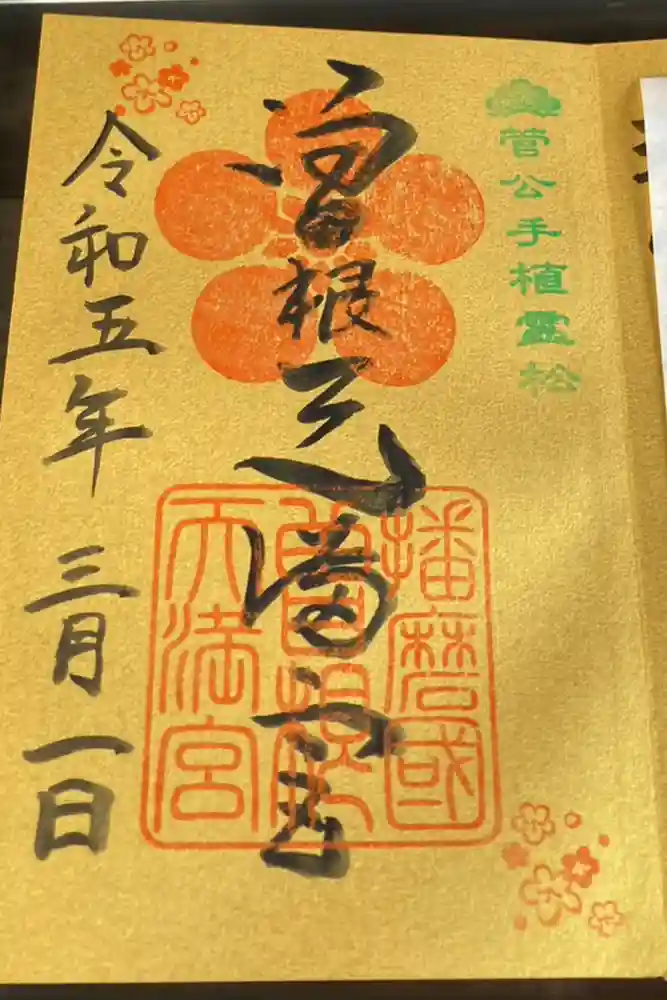 菅公手植霊松
曽根天満宮
播磨國
曽根
天満宮
令和五年 三月一日